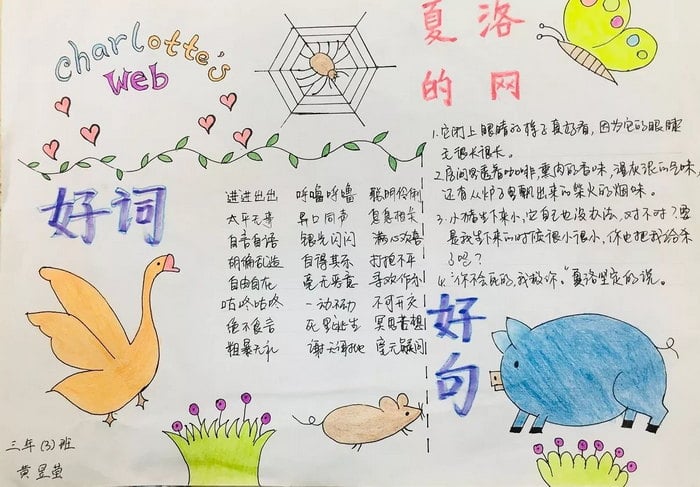 charlotte's
web
夏洛
的网
好词
进进出出 呼噜呼噜 聪明伶俐
太平无事 异口同声 息息相关
自言自语 银光闪闪 满心欢喜
胡编乱造 自得其乐 打抱不平
自由自在 毫无恶意 寻欢作乐
咕咚咕咚 一动不动 不可开交
绝不食言 死里逃生 冥思苦想
粗暴无礼 谢天谢地 毫无疑问
1.它闭上眼睛的样子真好看，因为它的眼睫
毛很长很长。
2.房间里透着咖啡、熏肉的香味、湿灰浆的气味，
还有从炉子里飘出来的柴火的烟味。
3.小猪生下来小，它自己也没办法，对不对？要
是我生下来的时候很小很小，你也把我给杀
了吗？
4."你不会死的，我救你。"夏洛坚定的说。
好
句
三年(3)班
黄昱萤